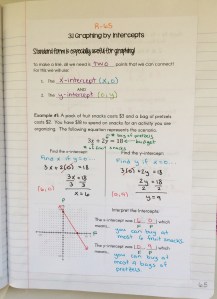 R-25
3) Graphing by Intercepts
Standard form is especially useful for graphing!
To make a line, all we need is TWO points that we can connect!
For this we will use:
1. The x-intercept (x, 0)
AND
2. The y-intercept (0, y)
Example #1: A pack of fruit snacks costs $3 and a bag of pretzels
costs $2. You have $18 to spend on snacks for an activity you are
organizing. The following equation represents the scenario:
# bag of pretzels
3x + 2y = 18 ← budget
# of fruit snacks
Find the x-intercept:
Find x if y=0...
3x + 2(0) = 18
3x = 18
3 3
x = 6
(6,0)
Find the y-intercept:
Find y if x=0...
3(0) + 2y = 18
2y = 18
2 2
y = 9
(0,9)
Interpret the intercepts:
The x-intercept is (6, 0) which
means...
F P
you can buy at
most 6 fruit snacks.
The y-intercept is (0, 9) which
means...
F P
you can buy at
most 9 bags of
pretzels